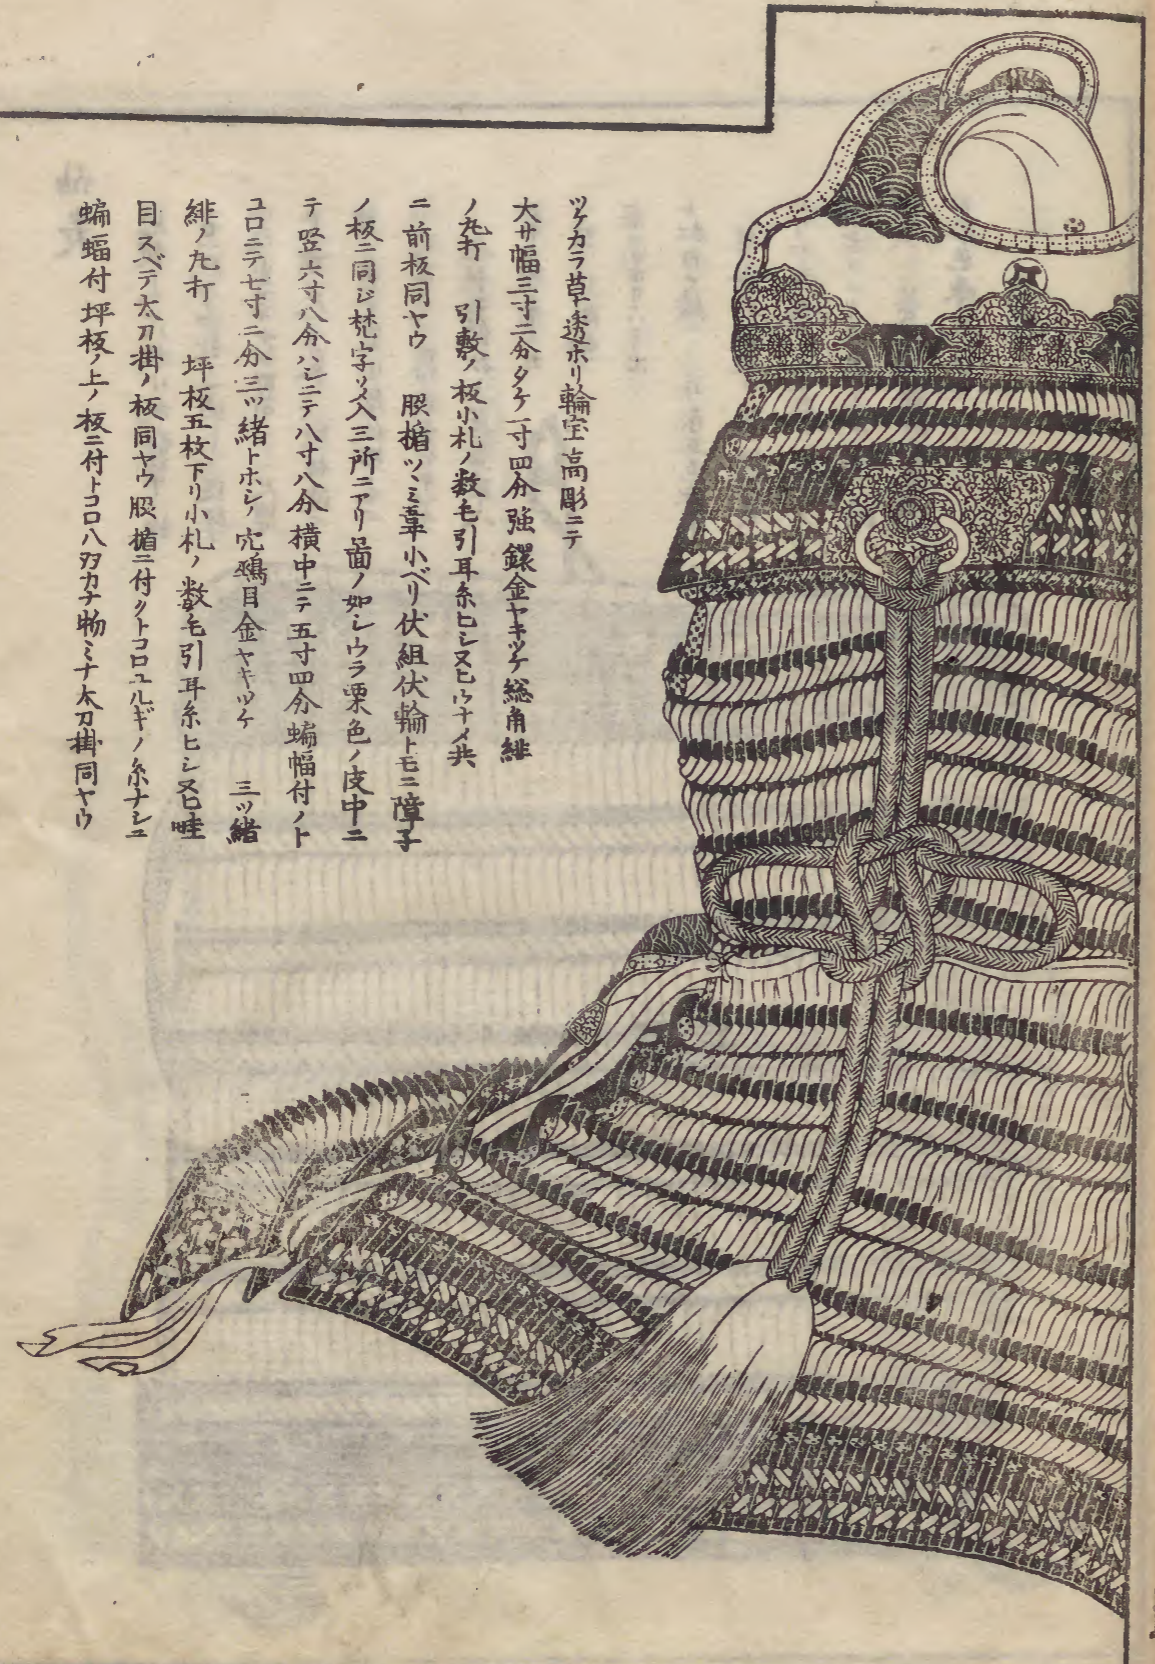 ツケカラ草透ホリ輪宝高彫ニテ
大サ幅三寸二分タケ一寸四分強鐶金ヤキツケ総角緋
ノ丸打 引敷ノ板小札ノ数毛引耳糸ヒシヌヒウナメ共
ニ前板同ヤウ 脇楯ツヽミ韋小ベリ伏組伏輪トモニ障子
ノ板ニ同ジ梵字ソメ入三所ニアリ啚ノ如シウラ栗色ノ皮中ニ
テ竪六寸八分ハシニテ八寸八分横中ニテ五寸四分蝙蝠付ノト
コロニテ七寸二分三ツ緒トホシノ穴鵐目金ヤキツケ 三ツ緒
緋ノ丸打 坪板五枚下リ小札ノ数毛引耳糸ヒシヌヒ畦
目スベテ太刀掛ノ板同ヤウ脇楯ニ付クトコロユルギノ糸ナシ
蝙蝠付坪板ノ上ノ板ニ付トコロハ カナ物ミナ太刀掛同ヤウ